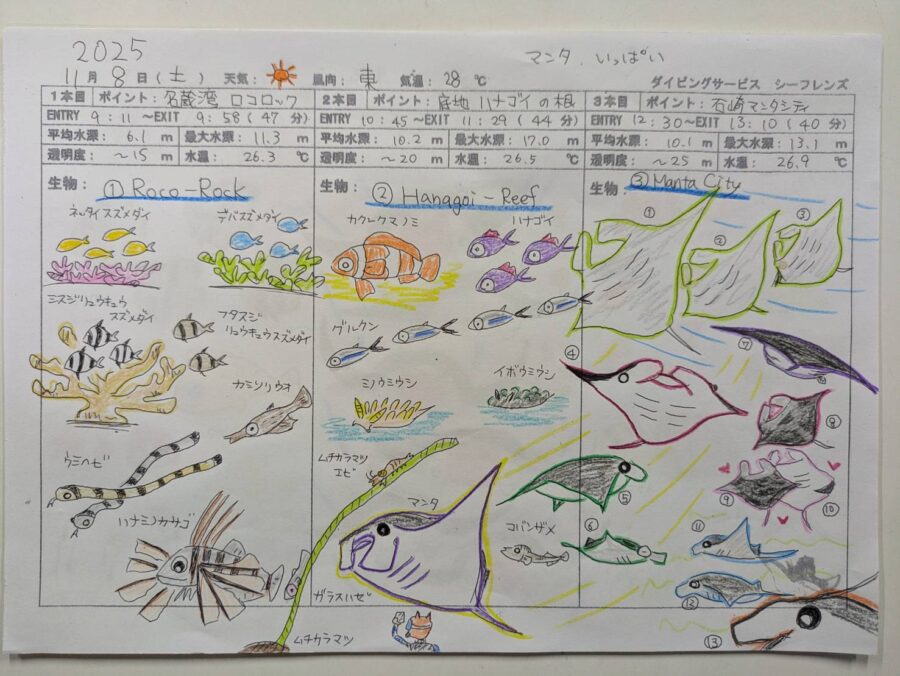 2025
マンタ.いっぱい
11月 8日(土) 天気: 風向: 東 気温: 28℃
ダイビングサービス シーフレンズ
1本目 ポイント: 名蔵湾 ロコロック
ENTRY 9:11 ~EXIT 9:58 (47 分)
平均水深: 6.1 m 最大水深: 11.3 m
透明度: ~15 m 水温: 26.3 ℃
生物: ① Roco-Rock
ネッタイスズメダイ
デバスズメダイ
ミスジリュウキュウ
スズメダイ
フタスジ
リュウキュウスズメダイ
カミソリウオ
ウミヘビ
ハナミノカサゴ
2本目 ポイント: 底地 ハナゴイの根
ENTRY 10:45 ~EXIT 11:29 (44 分)
平均水深: 10.2 m 最大水深: 17.0 m
透明度: ~20 m 水温: 26.5 ℃
生物: ② Hanagoi-Reef
カクレクマノミ
ハナゴイ
グルクン
ミノウミウシ
イボウミウシ
ムチカラマツ
エビ
マンタ
コバンザメ
ガラスハゼ
ムチカラマツ
3本目 ポイント: 石崎マンタシティ
ENTRY 12:30~EXIT 13:10 (40 分)
平均水深: 10.1 m 最大水深: 13.1 m
透明度: ~25 m 水温: 26.9 ℃
生物: ③ Manta City
①
②
③
④
⑦
⑧
⑤
⑨
⑩
⑥
⑪
⑫
⑬